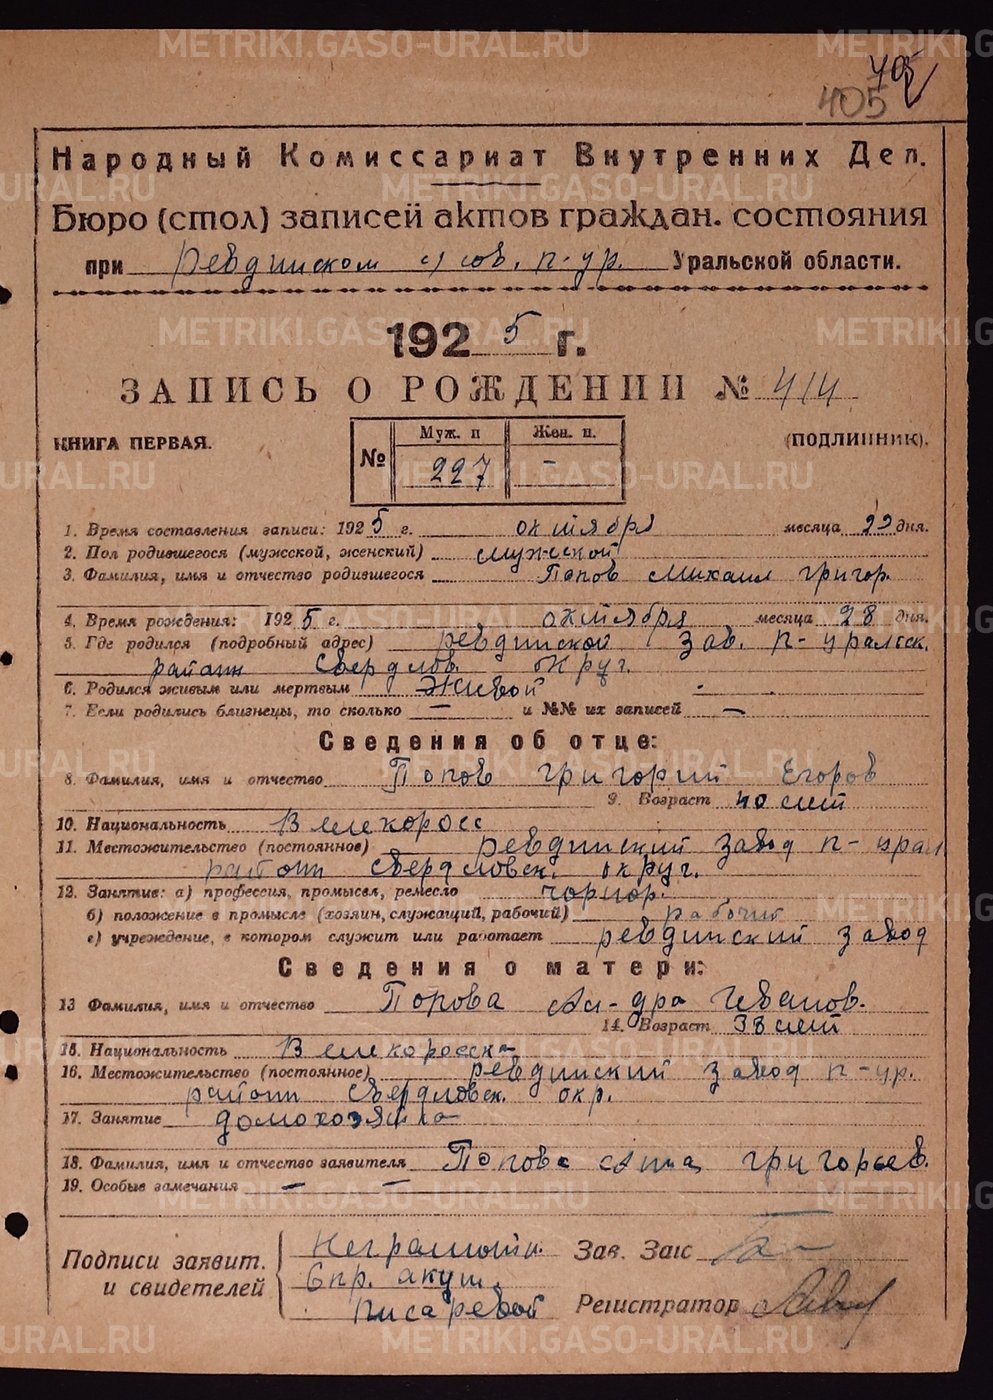 METRIKI.GASO-URAL.RU
405
405
Народный Комиссариат Внутренних Дел.
Бюро (стол) записей актов граждан. состояния
при Ревдинском с/сов. п-ур. Уральской области.
1925 г.
ЗАПИСЬ О РОЖДЕНИИ № 414
КНИГА ПЕРВАЯ.
(ПОДЛИННИК).
№ Муж. п Жен. п.
227 —
1. Время составления записи: 1925 г. октября месяца дня.
2. Пол родившегося (мужской, женский) мужской
3. Фамилия, имя и отчество родившегося Попов Михаил Григор.
4. Время рождения: 1925 г. октября месяца 28 дня.
5. Где родился (подробный адрес) Ревдинской зав. п-уральск.
район Свердлов. округ.
6. Родился живым или мертвым Живой
7. Если родились близнецы, то сколько — и №№ их записей —
Сведения об отце:
8. Фамилия, имя и отчество Попов Григорий Егоров
9. Возраст 40 лет
10. Национальность Великоросс
11. Местожительство (постоянное) Ревдинский завод п-урал
район Свердловск. округ.
12. Занятие: а) профессия, промысел, ремесло
б) положение в промысле (хозяин, служащий, рабочий) рабочий
в) учреждение, в котором служит или работает Ревдинский завод
Сведения о матери:
13 Фамилия, имя и отчество Попова Ал-дра Иванов.
14. Возраст 38 лет
15. Национальность Великоросска
16. Местожительство (постоянное) Ревдинский завод п-ур.
район Свердловск. окр.
17. Занятие домохозяйка
18. Фамилия, имя и отчество заявителя Попова Анна Григорьев.
19. Особые замечания — —
Подписи заявит.
и свидетелей
Неграмотн.
Спр. акуш.
Писаревой
Зав. Загс
Регистратор